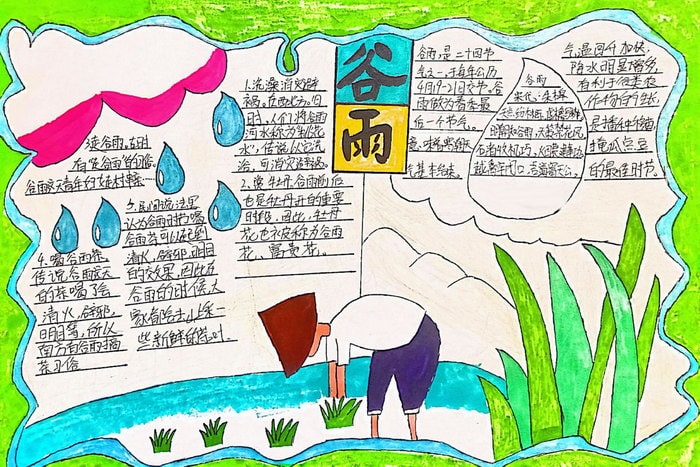 谷雨
谷雨,是二十四节
气之一,于每年公历
4月19~21日交节。谷
雨做为春季最
后一个节气。
气温回升加快,
降水明显增多,
有利于谷类农
作物的生长,
是播种移苗、
掩瓜点豆
的最佳时节。
谷雨
宋代:朱槔
1.洗澡消灾避
祸。在西北地方,旧
时,人们将谷雨
河水称为“桃花
水”,传说以它洗
浴,可消灾避祸。
2.赏牡丹。谷雨前后
也是牡丹开的重要
时段,因此,牡丹
花也被称为谷雨
花、富贵花。
走谷雨,古时
有“走谷雨”的习俗。
谷雨这天青年妇女走村串亲
3.民间说法里
认为谷雨时节喝
谷雨茶可以起到
清火、辟邪、明目
的效果,因此为
谷雨的时候大
家有除去山上采一
些新鲜的茶叶。
4.喝谷雨茶
传说谷雨这天
的茶喝了会
清火,辟邪,
明目等,所以
南方有谷雨摘
茶习俗